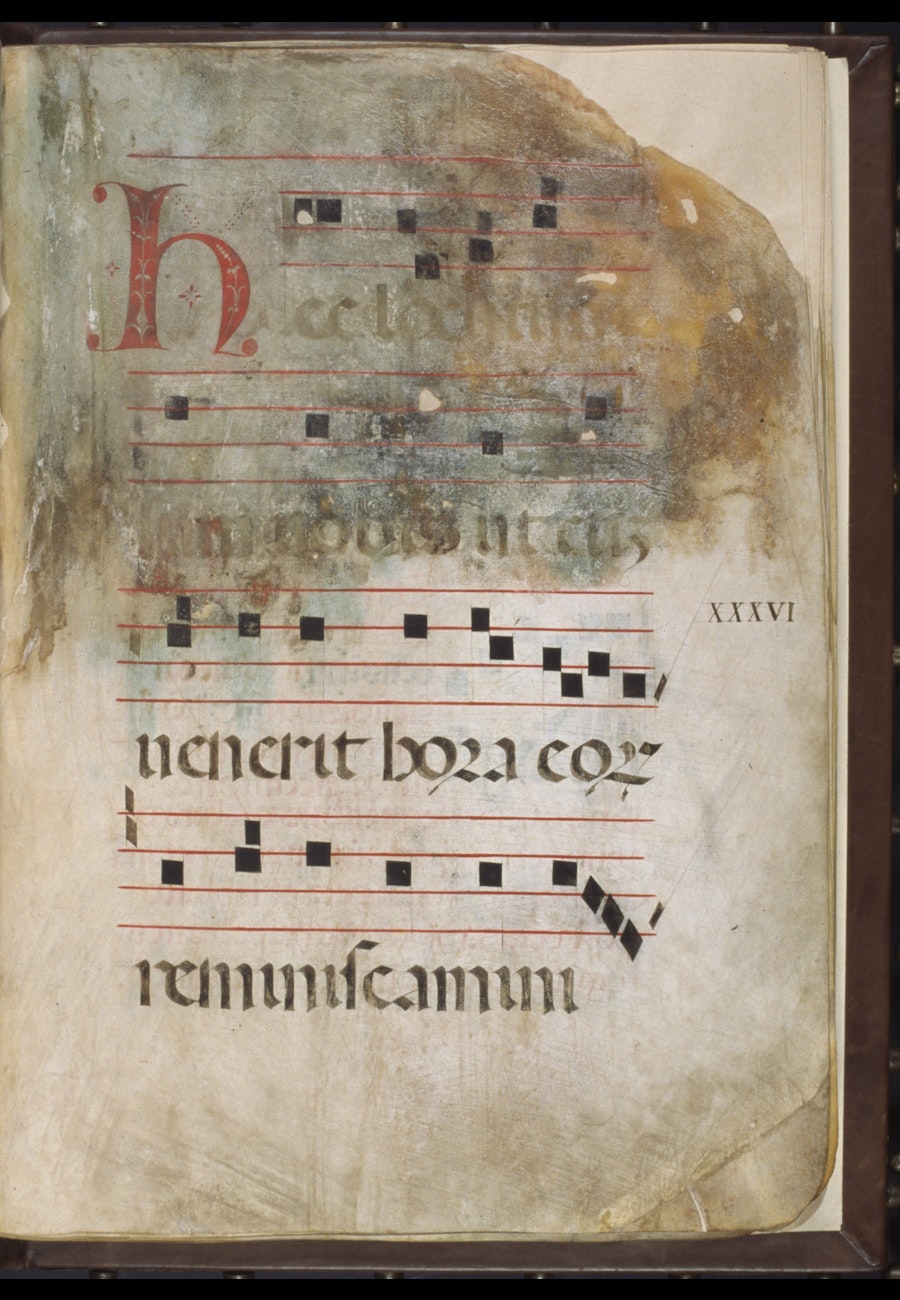 hec locutus
sum uobis ut cuʒ
XXXVI
uenerit hora eoꝝ
reminiscamini